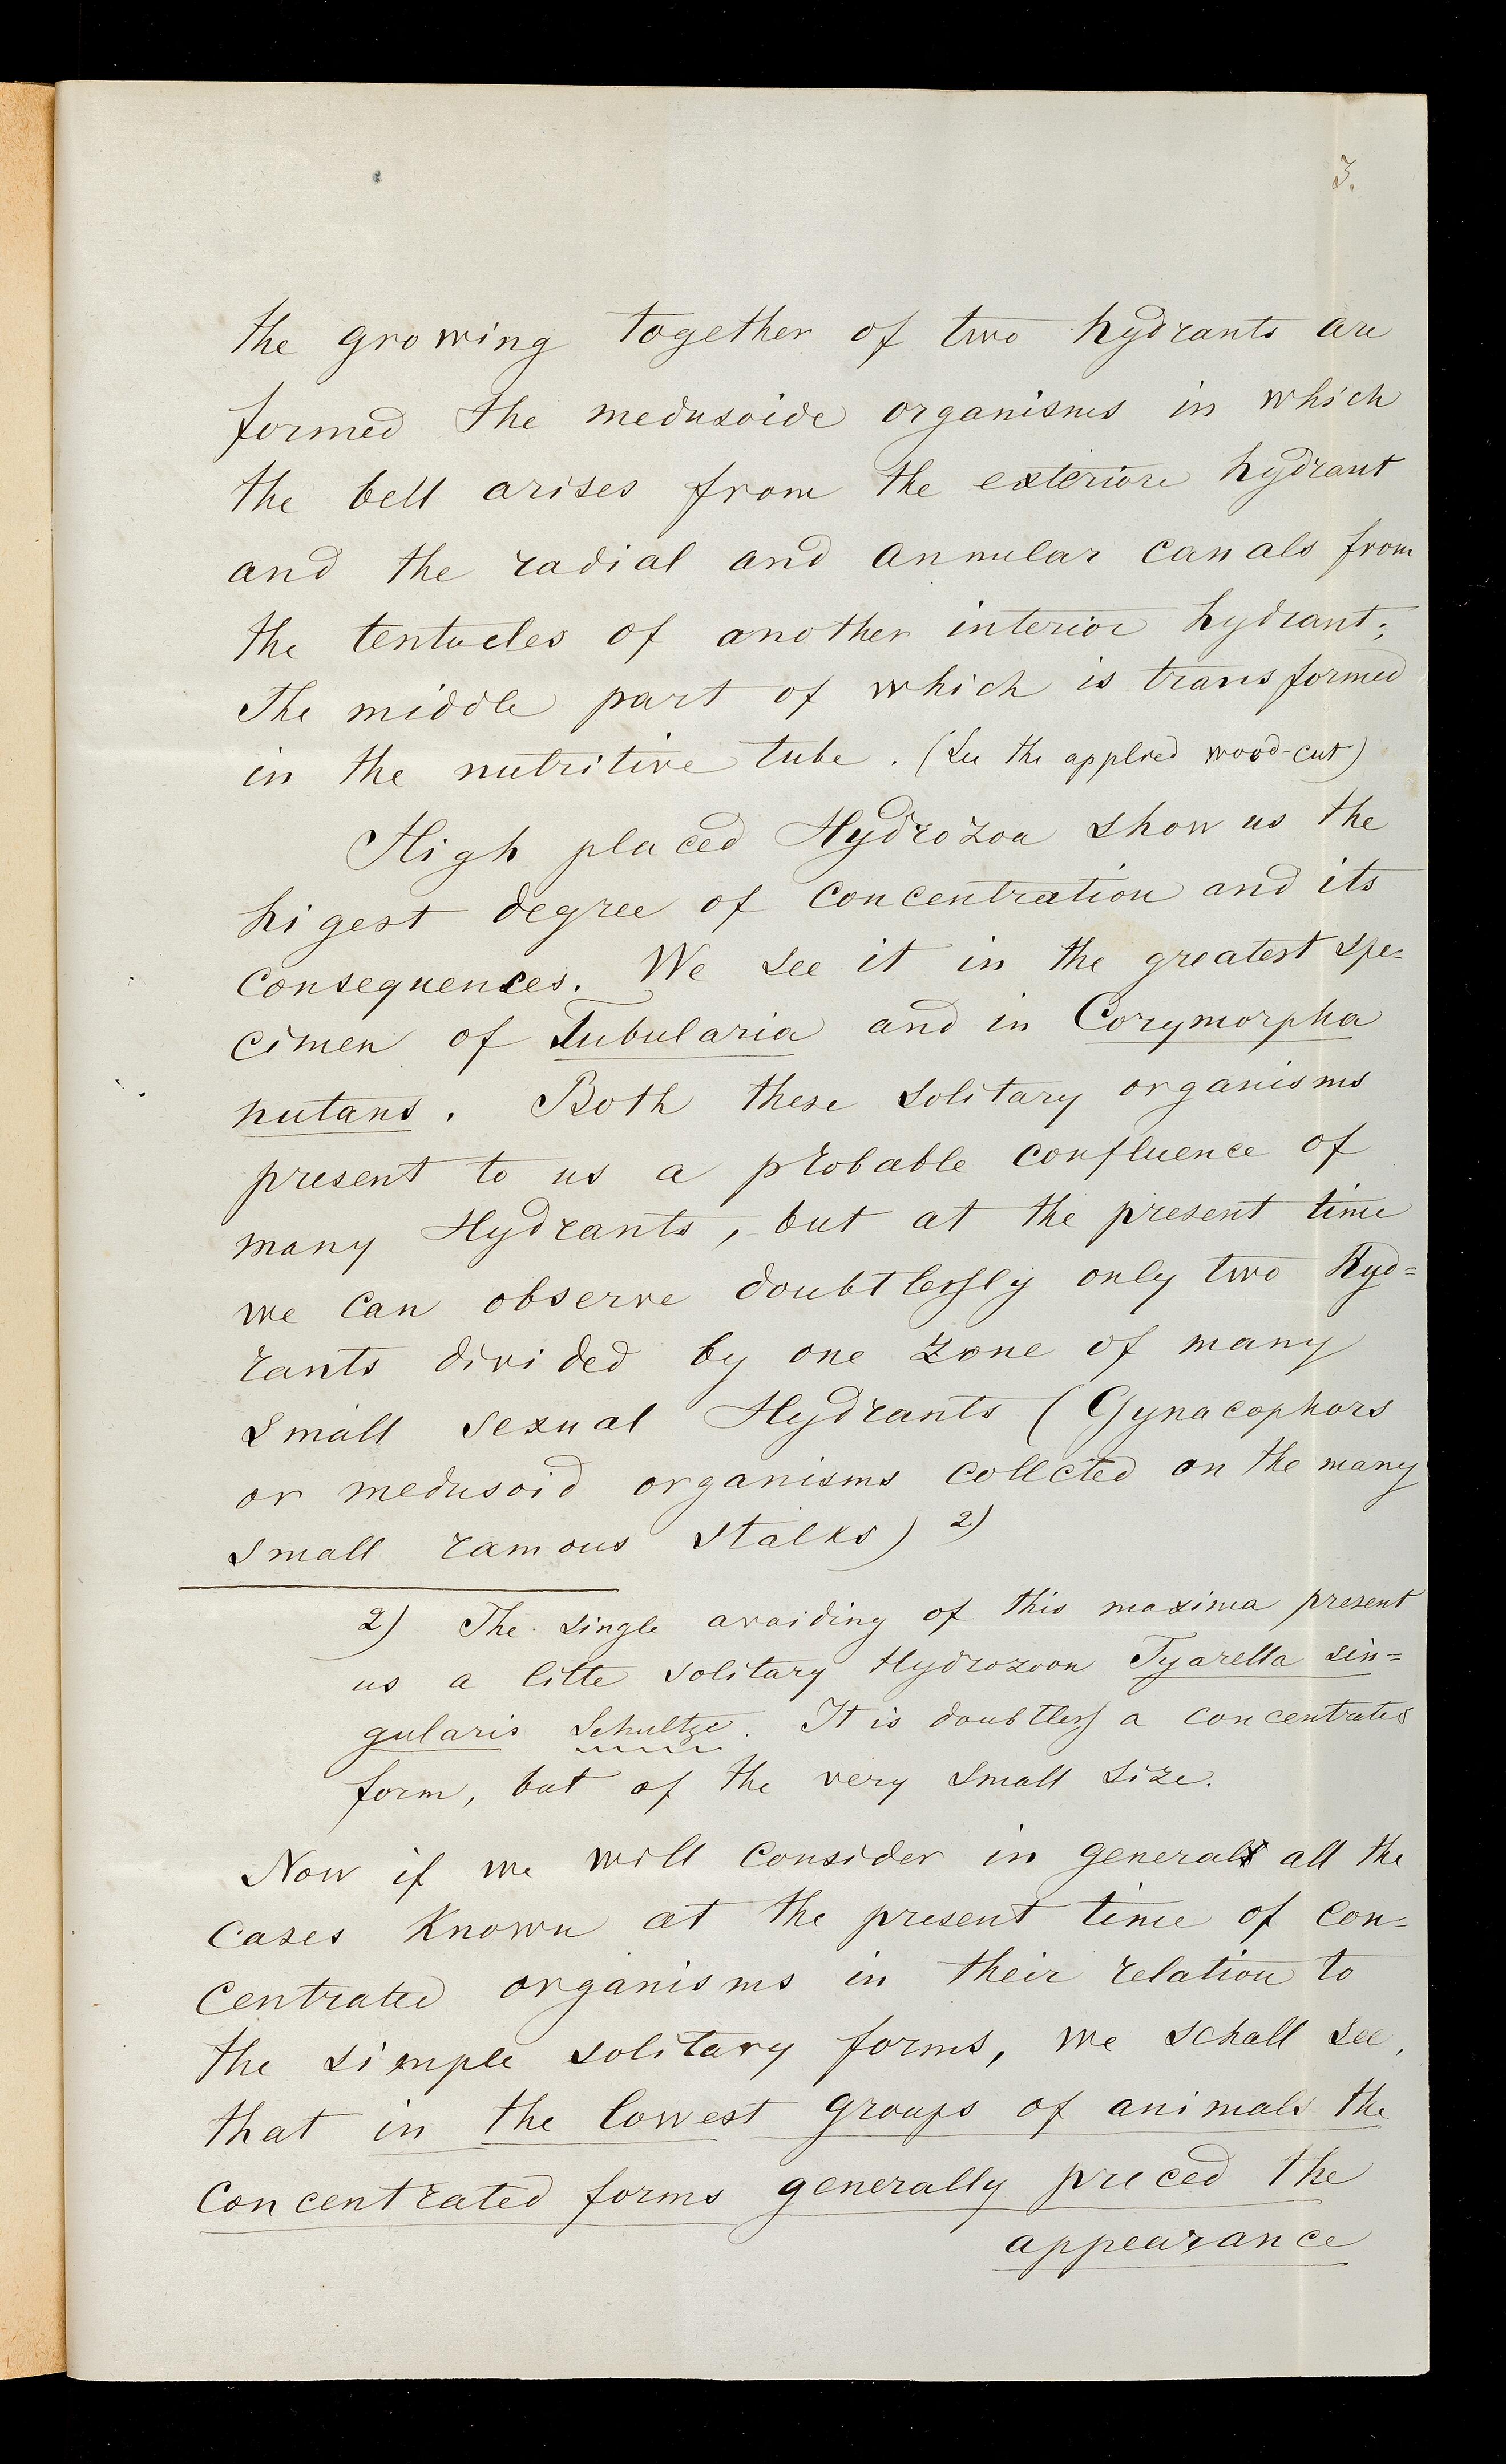 3.
the growing together of two hydrants are
formed the medusoide organisms in which
the bell arises from the exteriore hydrant
and the radial and annular canals from
the tentacles of another interior hydrant;
The middle part of which is transformed
in the nutritive tube. (See the applied wood-cut)
High placed Hydrozoa show us the
higest degree of concentration and its
consequences. We see it in the greatest spe=
cimen of Tubularia and in Corymorpha
nutans. Both these solitary organisms
present to us a probable confluence of
many Hydrants, but at the present time
we can observe doubtlessly only two Hyd=
rants divided by one zone of many
small sexual Hydrants (Gynacophors
or medusoid organisms collcted on the many
small ramous stalks) 2)
2) The single avoiding of this maxima present
us a litte solitary Hydrozoon Tyarella sin=
gularis Schultze. It is doubtless a concentrated
form, but of the very small size.
Now if we will consider in general all the
cases known at the present time of con=
centrated organisms in their relation to
the simple solitary forms, we schall see,
that in the lowest groups of animals the
concentrated forms generally preced the
appearance